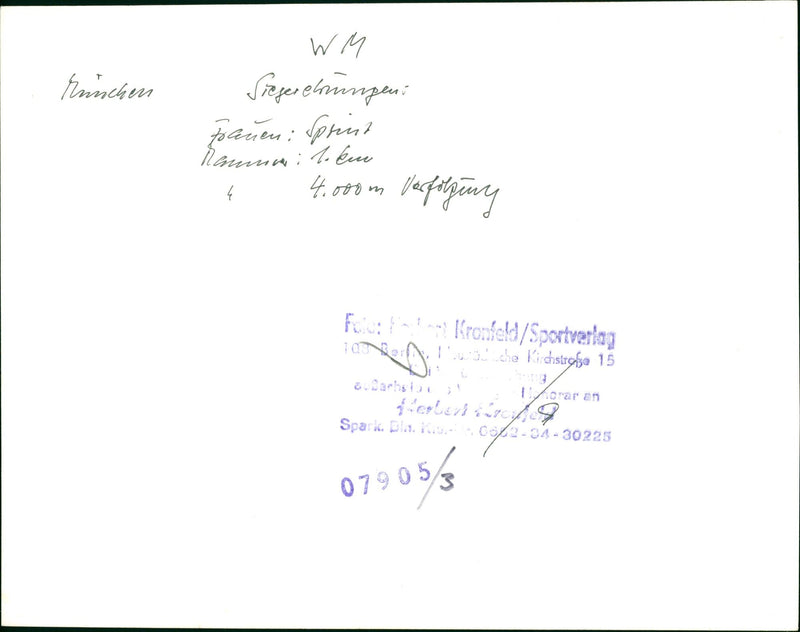 WM
München Siegerehrungen:
Frauen: Sprint
Männer: 1. km
" 4.000 m Verfolgung
Foto: Herbert Kronfeld/Sportverlag
108 Berlin, Neustädtische Kirchstraße 15
außerhalb Honorar an
Herbert Kronfeld
Spark. Bln. 0652-34-30225
07905/3